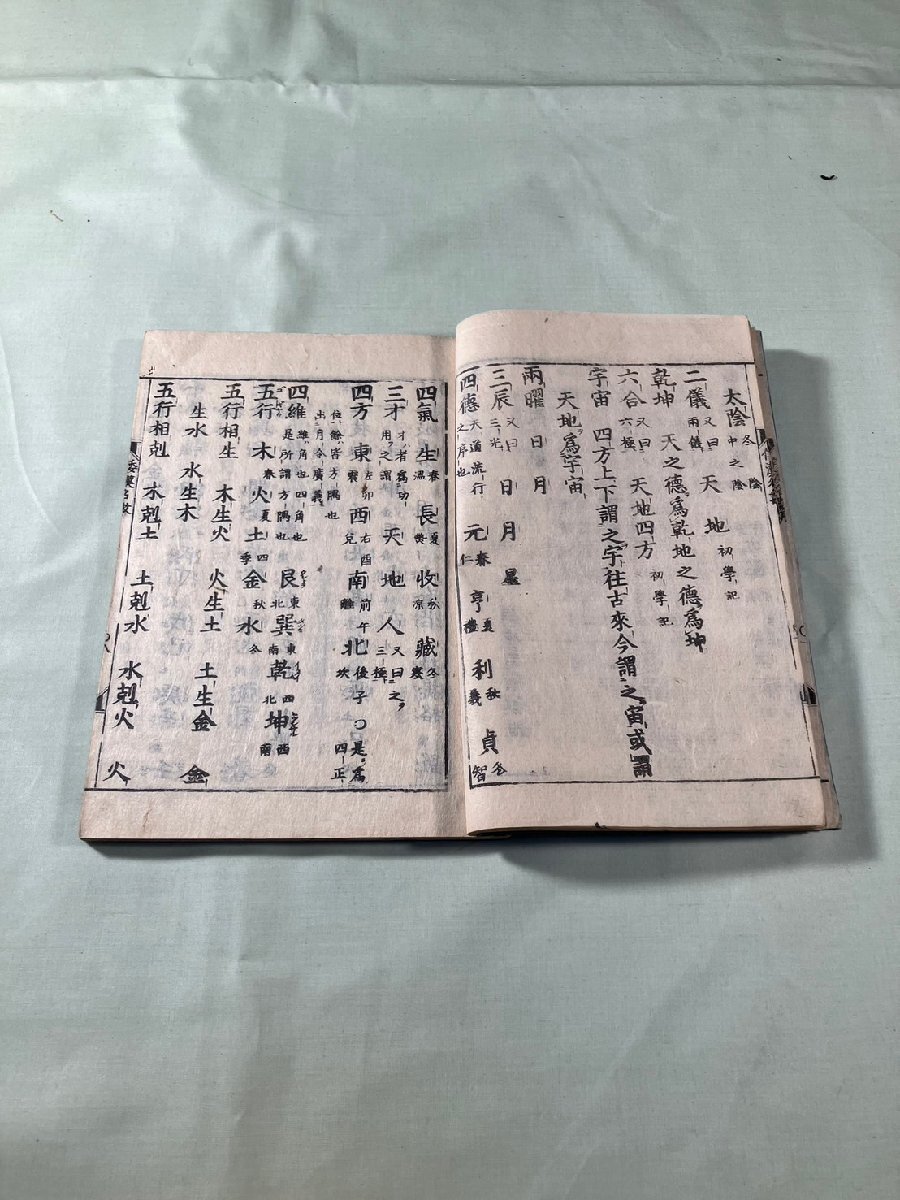 太陰 冬 陰中之陰
二儀 又曰兩儀 天 地 初學記
乾坤 天之德爲乾地之德爲坤
六合 又曰六極 天地四方 初學記
宇宙 四方上下謂之宇往古來今謂之宙或謂
天地爲宇宙
兩曜 日 月
三辰 又曰三光 日 月 星
四德 天道流行之序也 元 春仁 亨 夏禮 利 秋義 貞 冬智
四氣 生 春溫 長 夏 收 秋 藏 冬
三才 才者爲功用之謂 天 地 人 又曰之三極
四方 東 左卯震 西 右酉兌 南 前午離 北 後子坎 ○是爲四正
位餘皆方隅也出月令廣義
四維 維角也四角也是所謂方隅也 艮 東北 巽 東南 乾 西北 坤 西南
五行 木 春 火 夏 土 四季 金 秋 水 冬
五行相生 木生火 火生土 土生金 金
生水 水生木
五行相剋 木剋土 土剋水 水剋火 火